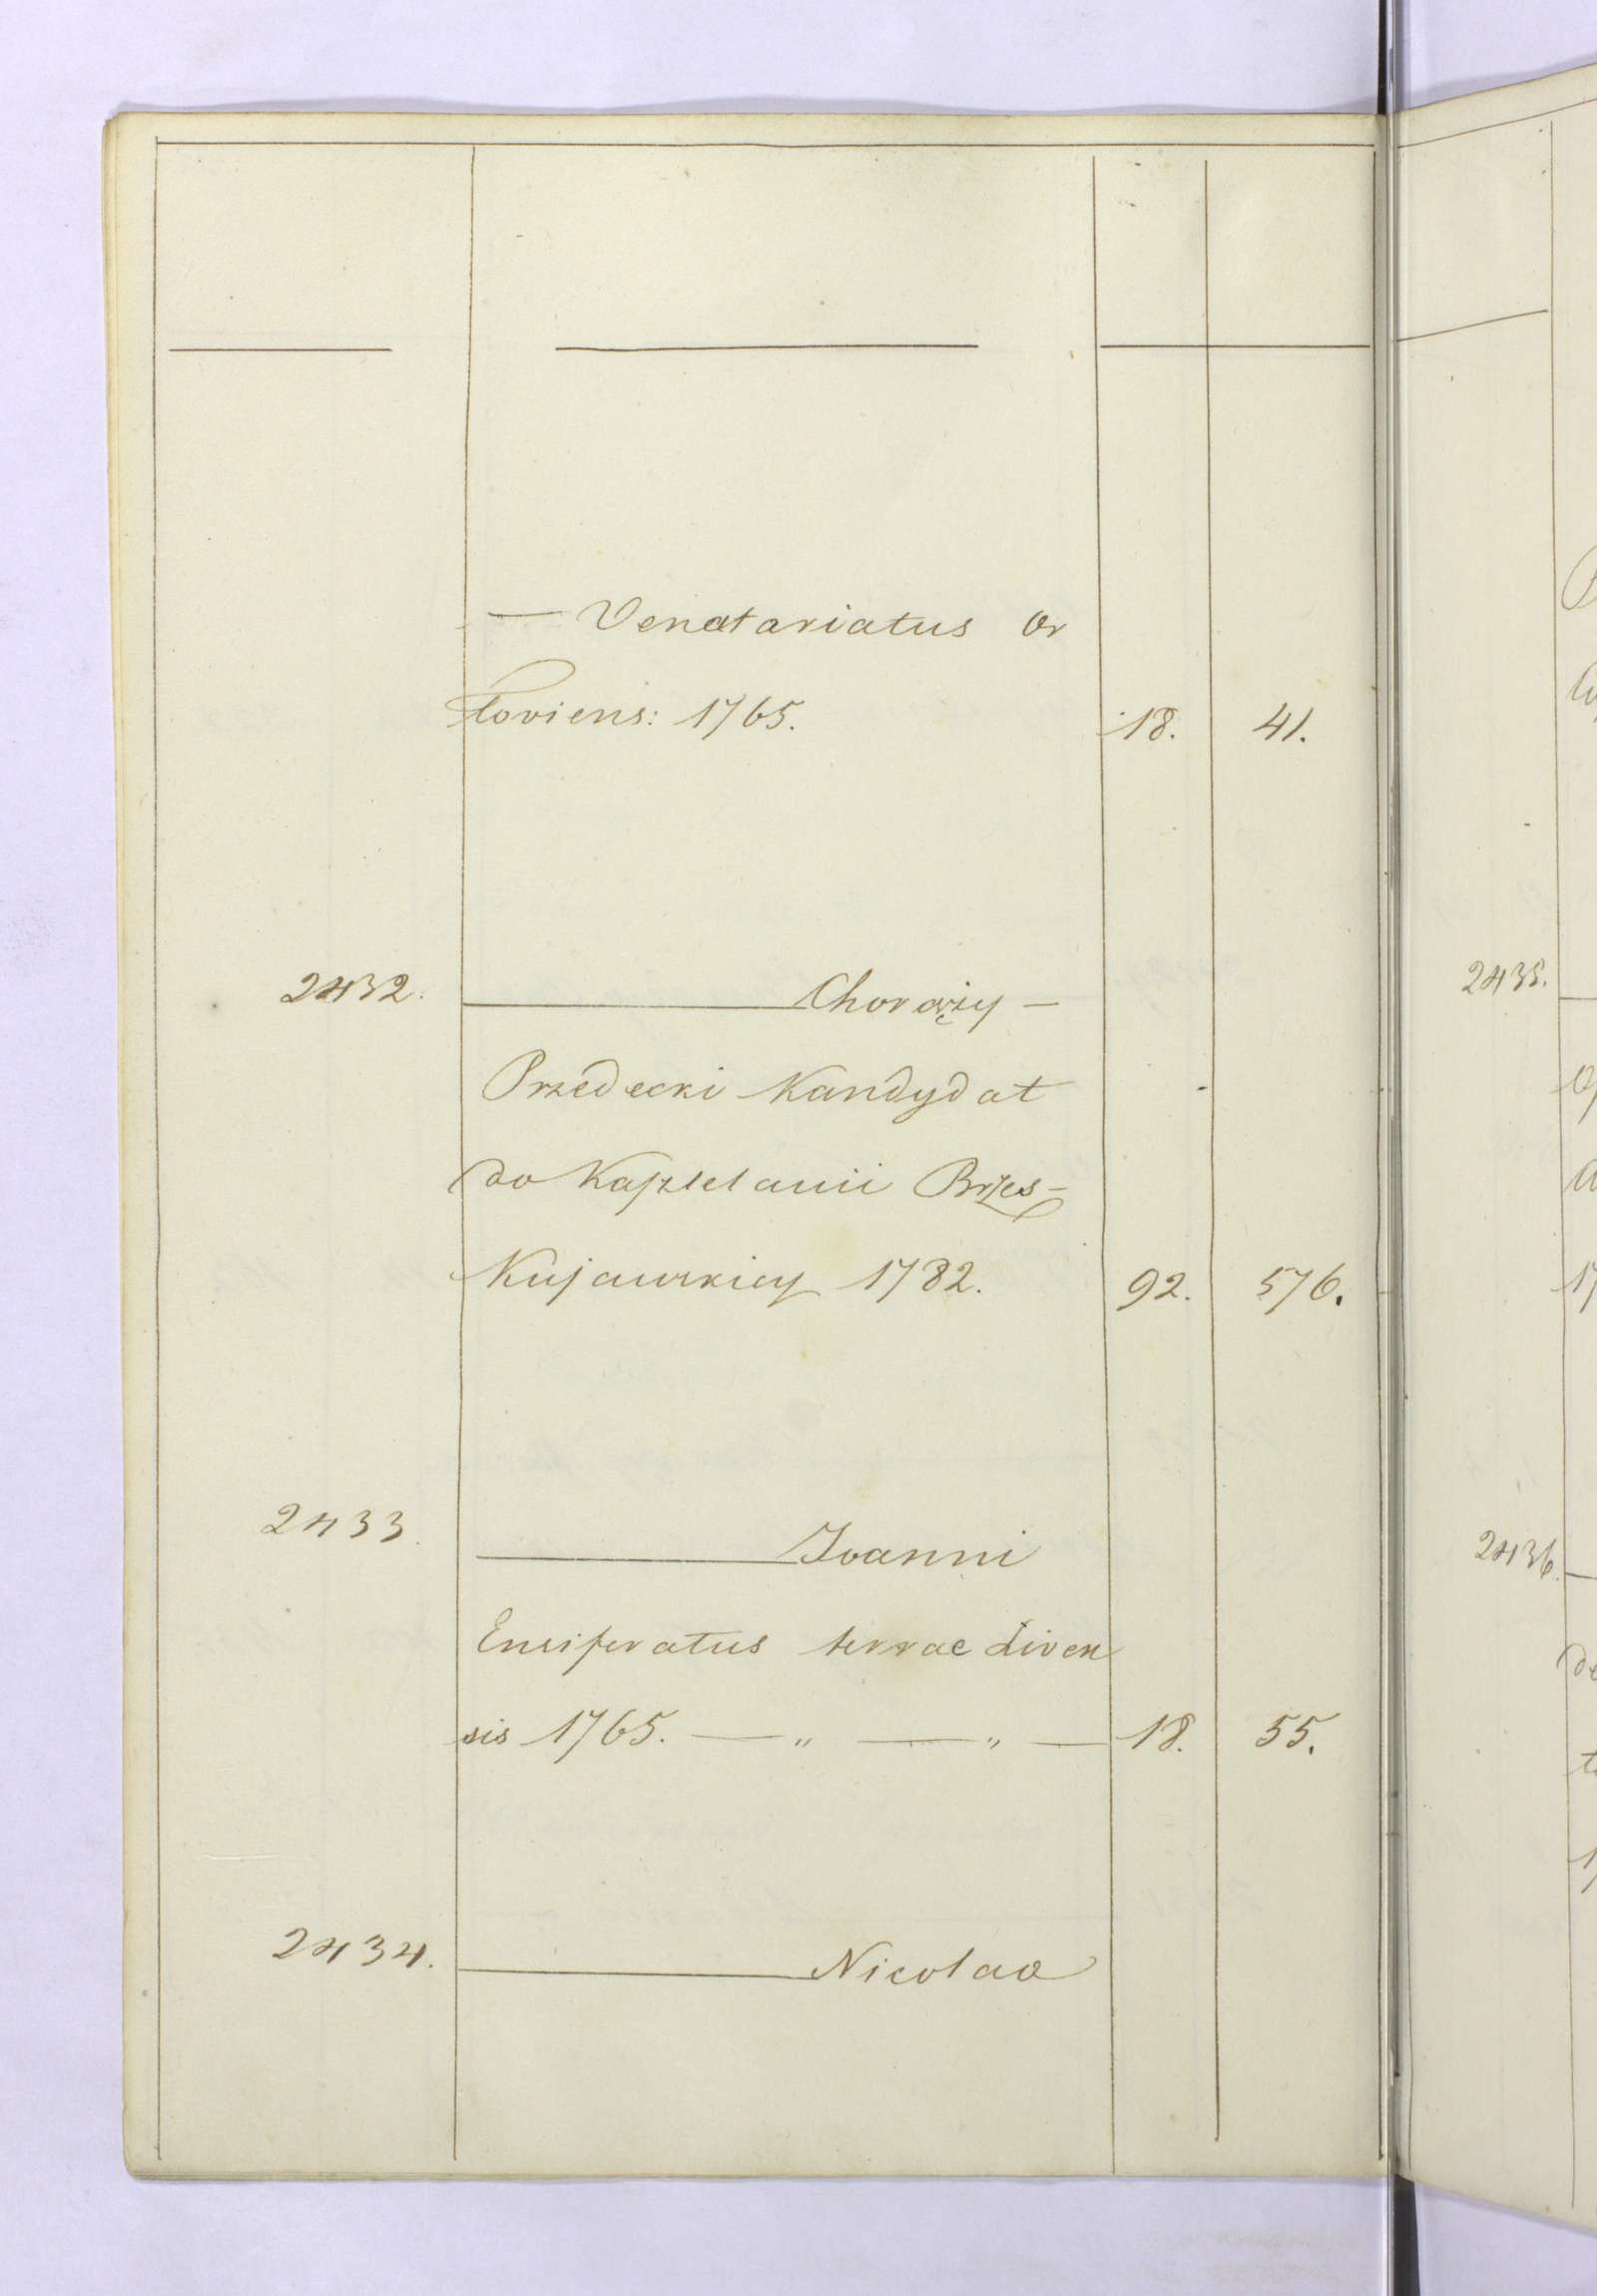 — Venatariatus Or
łoviens: 1765. 18. 41.
2432. — Chorąży —
Przedecki Kandydat
do Kasztelanii Brzes-
Kujawskiey 1782. 92. 576.
2433. — Joanni
Ensiferatus terrae Liven
sis 1765. — „ — „ — 18. 55.
2434. — Nicolao
2435.
2436.